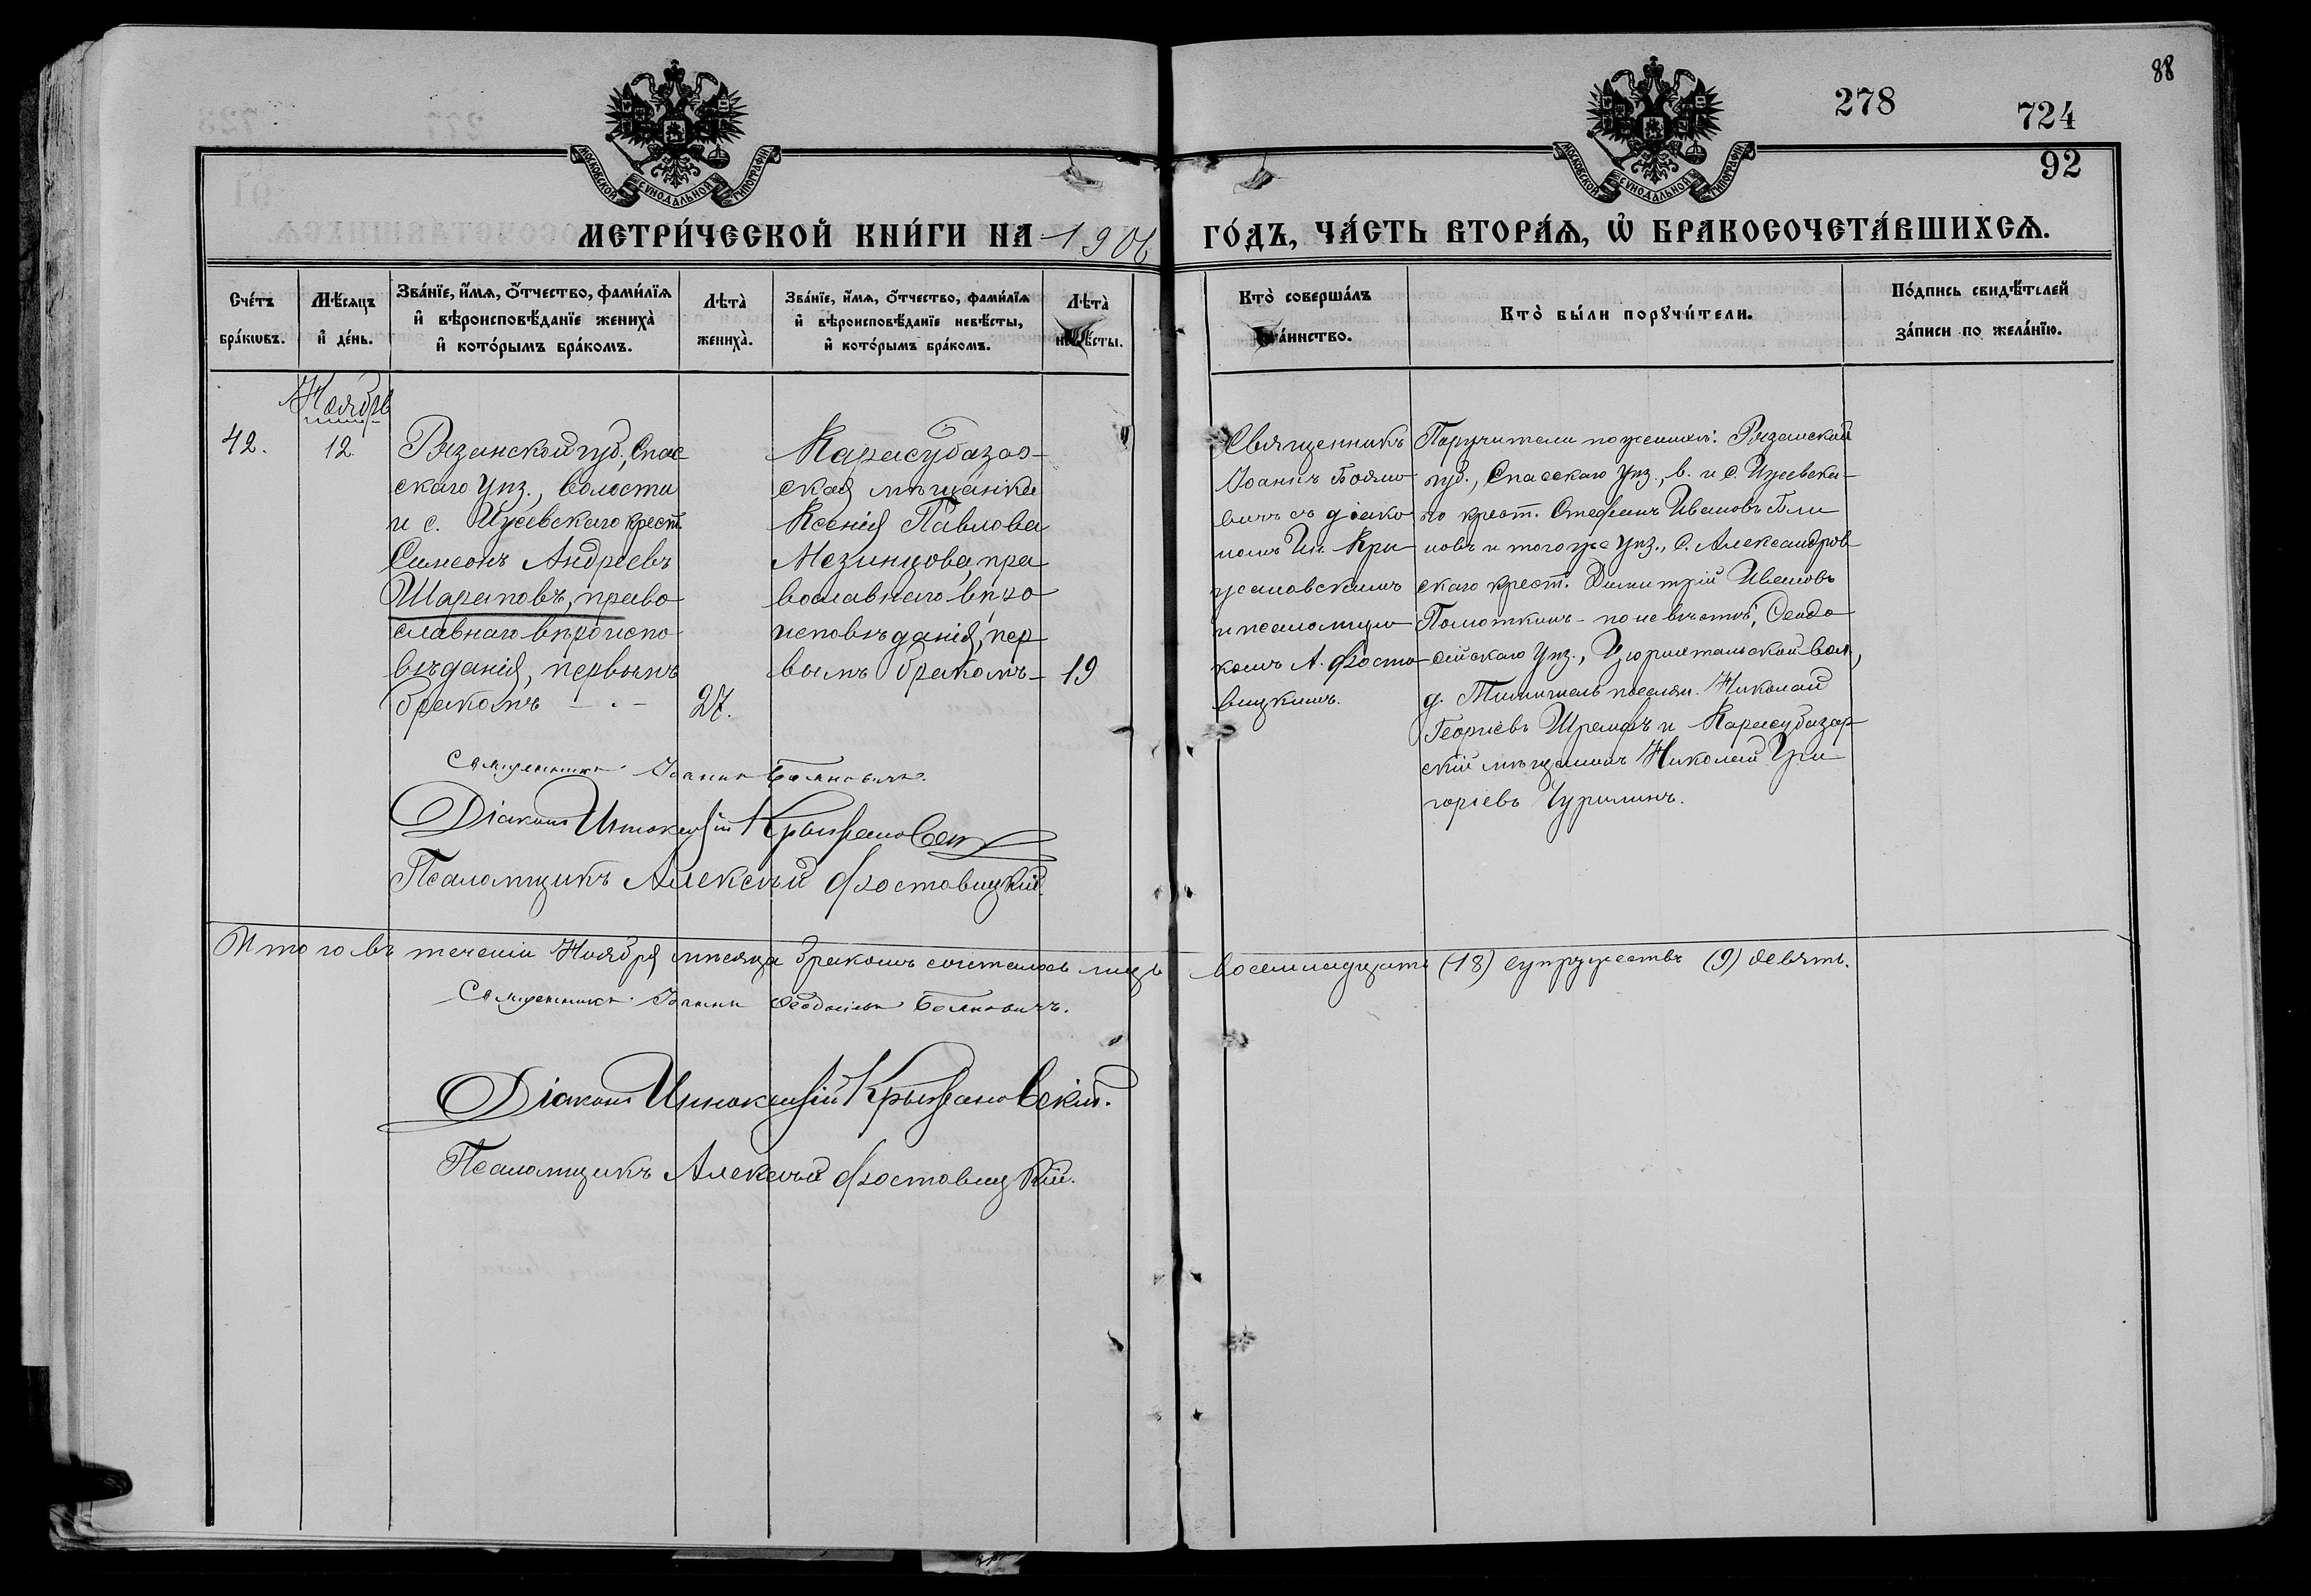 88
278
724
92
МОСКОВСКОЙ СѴНОДАЛЬНОЙ ТИПОГРАФІИ
МОСКОВСКОЙ СѴНОДАЛЬНОЙ ТИПОГРАФІИ
МЕТРИ́ЧЕСКОЙ КНИ́ГИ НА 1906 ГО́ДЪ, ЧА́СТЬ ВТОРА́Ѧ, Ѡ҆ БРАКОСОЧЕТА́ВШИХСѦ.
Сче́тъ бра́кѡвъ.
Мѣ́сѧцъ и҆ де́нь.
Зва́нїе, и҆́мѧ, ѻ҆́тчество, фами́лїѧ и҆ вѣроисповѣ́данїе жениха̀ и҆ кото́рымъ бра́комъ.
Лѣта̀ жениха̀.
Зва́нїе, и҆́мѧ, ѻ҆́тчество, фами́лїѧ и҆ вѣроисповѣ́данїе невѣ́сты, и҆ кото́рымъ бра́комъ.
Лѣта̀ невѣ́сты.
Кто̀ соверша́лъ таинство.
Кто̀ бы́ли порꙋчи́тели.
По́дпись свидѣ́телей за́писи по жела́нїю.
Ноябрь
42.
12.
Рязанской губ., Спас
скаго уѣз., волости
и с. Ижевскаго крест.
Симеонъ Андреевъ
Шараповъ, право
славнаго вѣроиспо
вѣданія, первымъ
бракомъ - . -
27.
Карасубазар-
ская мѣщанка
Ксенія Павлова
Мезинцова, пра
вославнаго вѣро
исповѣданія, пер
вымъ бракомъ -
19
Священникъ
Іоаннъ Бояно
вичъ съ діако
номъ Ин. Кры
жановскимъ
и псаломщи
комъ А. Хросто
вицкимъ.
Поручители по женихѣ: Рязанской
губ., Спасскаго уѣз., в. и с. Ижевска-
го крест. Стефанъ Ивановъ Бли
новъ и того же уѣз., с. Александров
скаго крест. Димитрій Ивановъ
Полюткинъ - по невѣстѣ, Ѳеодо
сійскаго уѣз., Цюрихтальской вол.,
Николай
Георгіевъ Шрамфъ и Карасубазар
скій мѣщанинъ Николай Гри
горіевъ Чурилинъ.
Священникъ Іоаннъ Бояновичъ.
Діаконъ Иннокентій Крыжановскій
Псаломщикъ Алексѣй Хростовицкій.
Итого въ теченіи Ноября мѣсяца бракомъ сочеталось лицъ восемнадцать (18) супружествъ (9) девять.
Священникъ Іоаннъ Ѳеодосіевъ Бояновичъ.
Діаконъ Иннокентій Крыжановскій.
Псаломщикъ Алексѣй Хростовицкій.